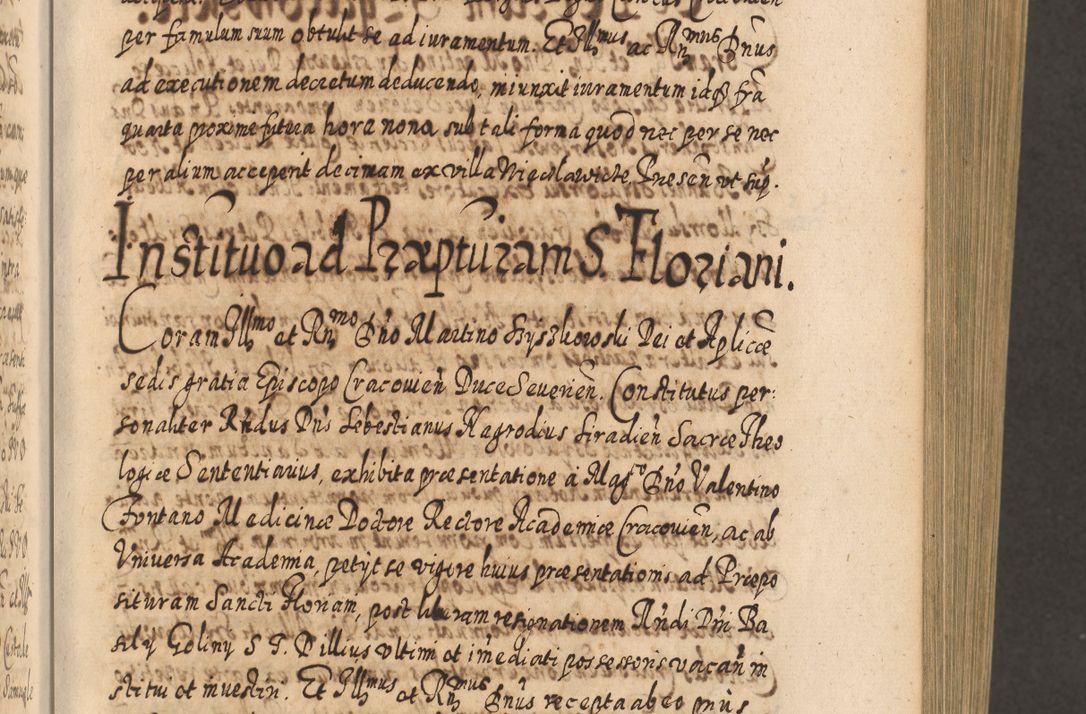 per famulum suum obtulit se ad iuramentum. Et Illmus ac Rndmus Dnus
ad executionem decretum deducendo, iniunxit iuramentum idq fra
quarta proxime futura hora nona sub tali forma quod nec per se nec
per alium acceperit decimam ex villa Presen ut sup.
Institutio ad Præpturam S. Floriani.
Coram Illmo et Rndmo Dno Martino Szyszkowski Dei et Aplicæ
sedis gratia Episcopo Cracovien Duce Severien. Constitutus per:
sonaliter Rndus Dns Sebestianus Nagrodius Siradien Sacræ Theo
logiæ Sententiarius, exhibita præsentatione à Magco Dno Valentino
Fontano Medicinæ Doctore Rectore Academiæ Cracovien, ac ab
Universa Academia, petijt se vigore huius præsentationis ad Præpo
situram Sancti Floriani, post liberam resignationem Rndi Dni Ba
silij Goliny S T D illius ultimi et imediati possessoris vacan in
stitui et investiri. Et Illmus et Rndmus Dnus recepta ab eo prius